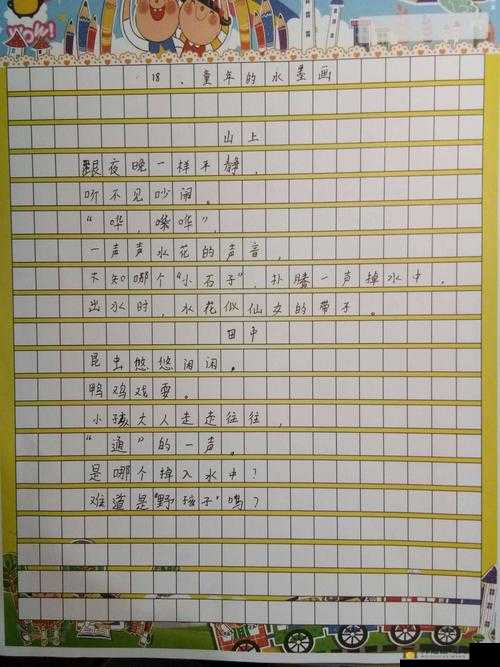 18、童年的水墨画
山上
跟夜晚一样平静，
听不见吵闹。
“哗，嗓哗”，
一声声水花的声音，
不知哪个“小石子”，扑腾一声掉水中，
出水时，水花似仙女的带子。
田中
昆虫悠悠闲闲。
鸭鸡戏耍。
小孩大人走走往往，
“通”的一声。
是哪个掉入水中？
难道是“野孩子”吗？